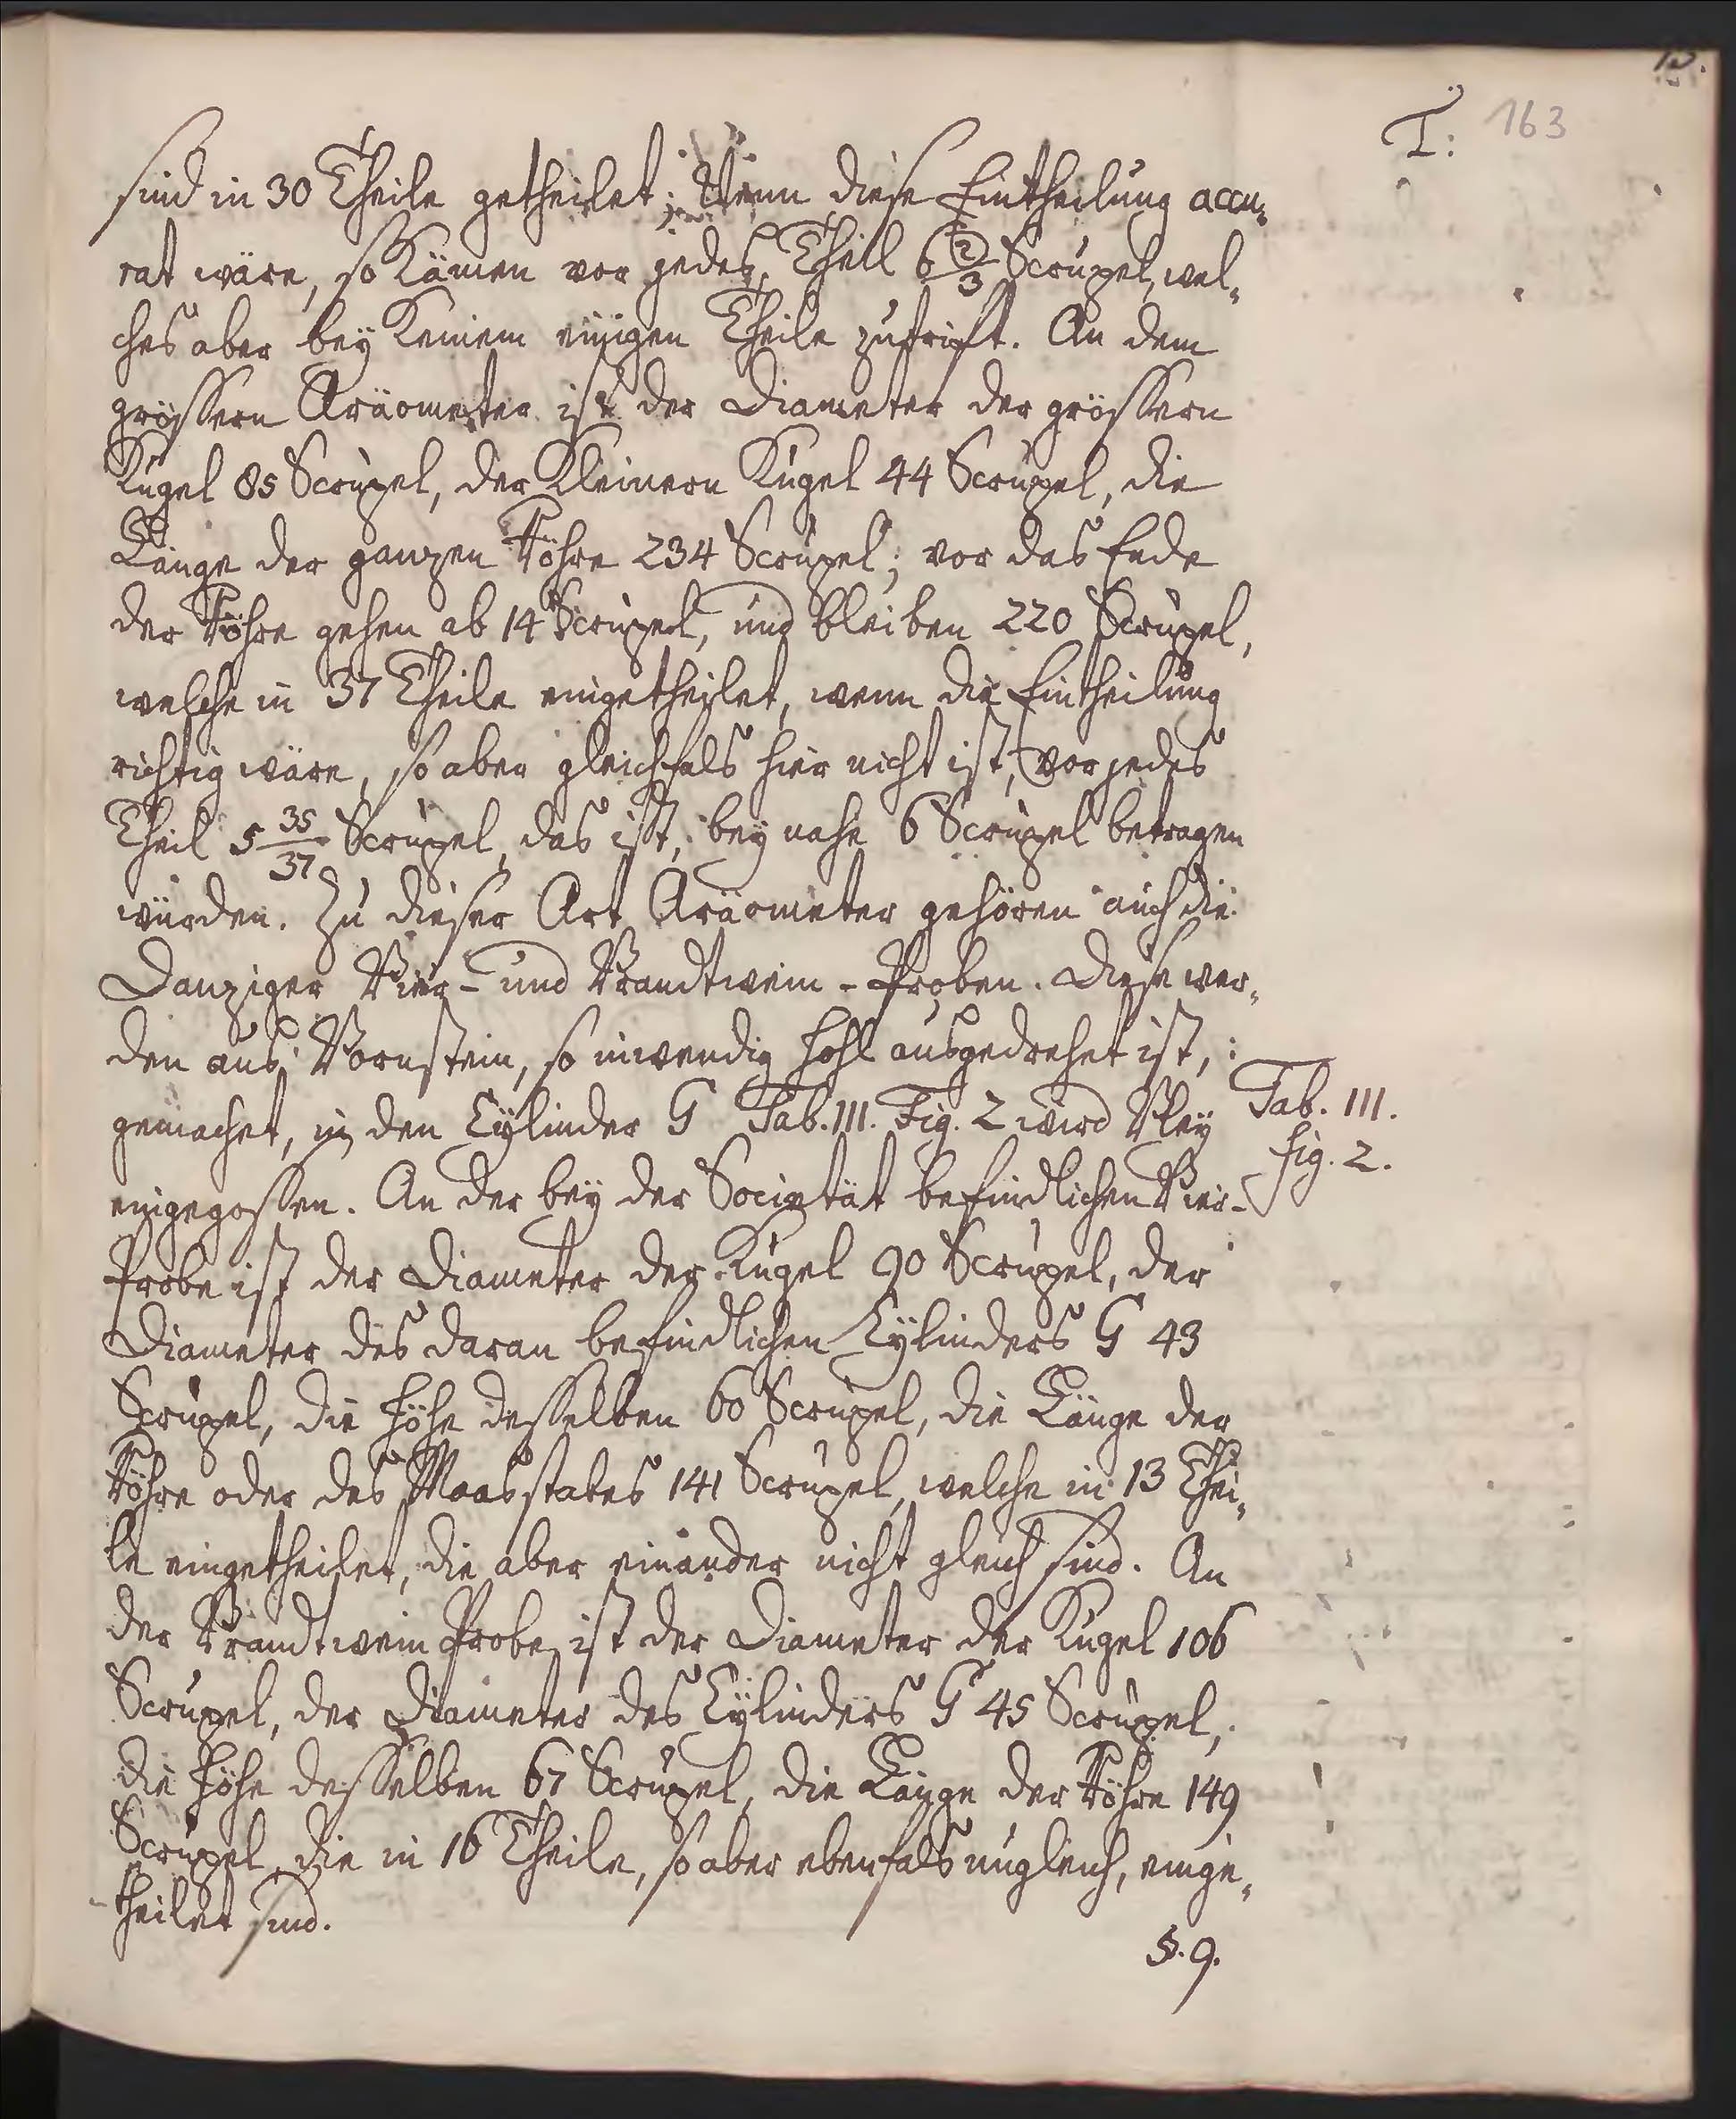 T: 163
sind in 30 Theile getheilet; Wenn diese Eintheilung accu-
rat wäre, so kämen vor jedes Theil 6 2/3 Scrupel, wel-
ches aber bey keinem einigen Theile zutrift. An dem
grössern Aräometer ist der Diameter der grössern
Kugel 85 Scrupel, der kleinern Kugel 44 Scrupel, die
Länge der ganzen Röhre 234 Scrupel; vor das Ende
der Röhre gehen ab 14 Scrupel, und bleiben 220 Scrupel,
welche in 37 Theile eingetheilet, wenn die Eintheilung
richtig wäre, so aber gleichfals hier nicht ist, vor jedes
Theil 5 35/37 Scrupel, das ist, bey nahe 6 Scrupel betragen
würden. Zu dieser Art Aräometer gehören auch die
Danziger Bier- und Brandtwein-Proben. Diese wer-
den aus Bornstein, so inwendig hohl ausgedrehet ist,
gemachet, in den Cylinder G Tab. III. Fig. 2 wird Bley
eingegossen. An der bey der Societät befindlichen Bier-
Probe ist der Diameter der Kugel 90 Scrupel, der
Diameter des daran befindlichen Cylinders G 43
Scrupel, die Höhe desselben 60 Scrupel, die Länge der
Röhre oder des Maasstabes 141 Scrupel, welche in 13 Thei-
le eingetheilet, die aber einander nicht gleich sind. An
der Brandtwein Probe ist der Diameter der Kugel 106
Scrupel, der Diameter des Cylinders G 45 Scrupel,
die Höhe desselben 67 Scrupel, die Länge der Röhre 149
Scrupel, die in 16 Theile, so aber ebenfals ungleich, einge-
theilet sind.
§. 9.
Tab. III.
fig. 2.